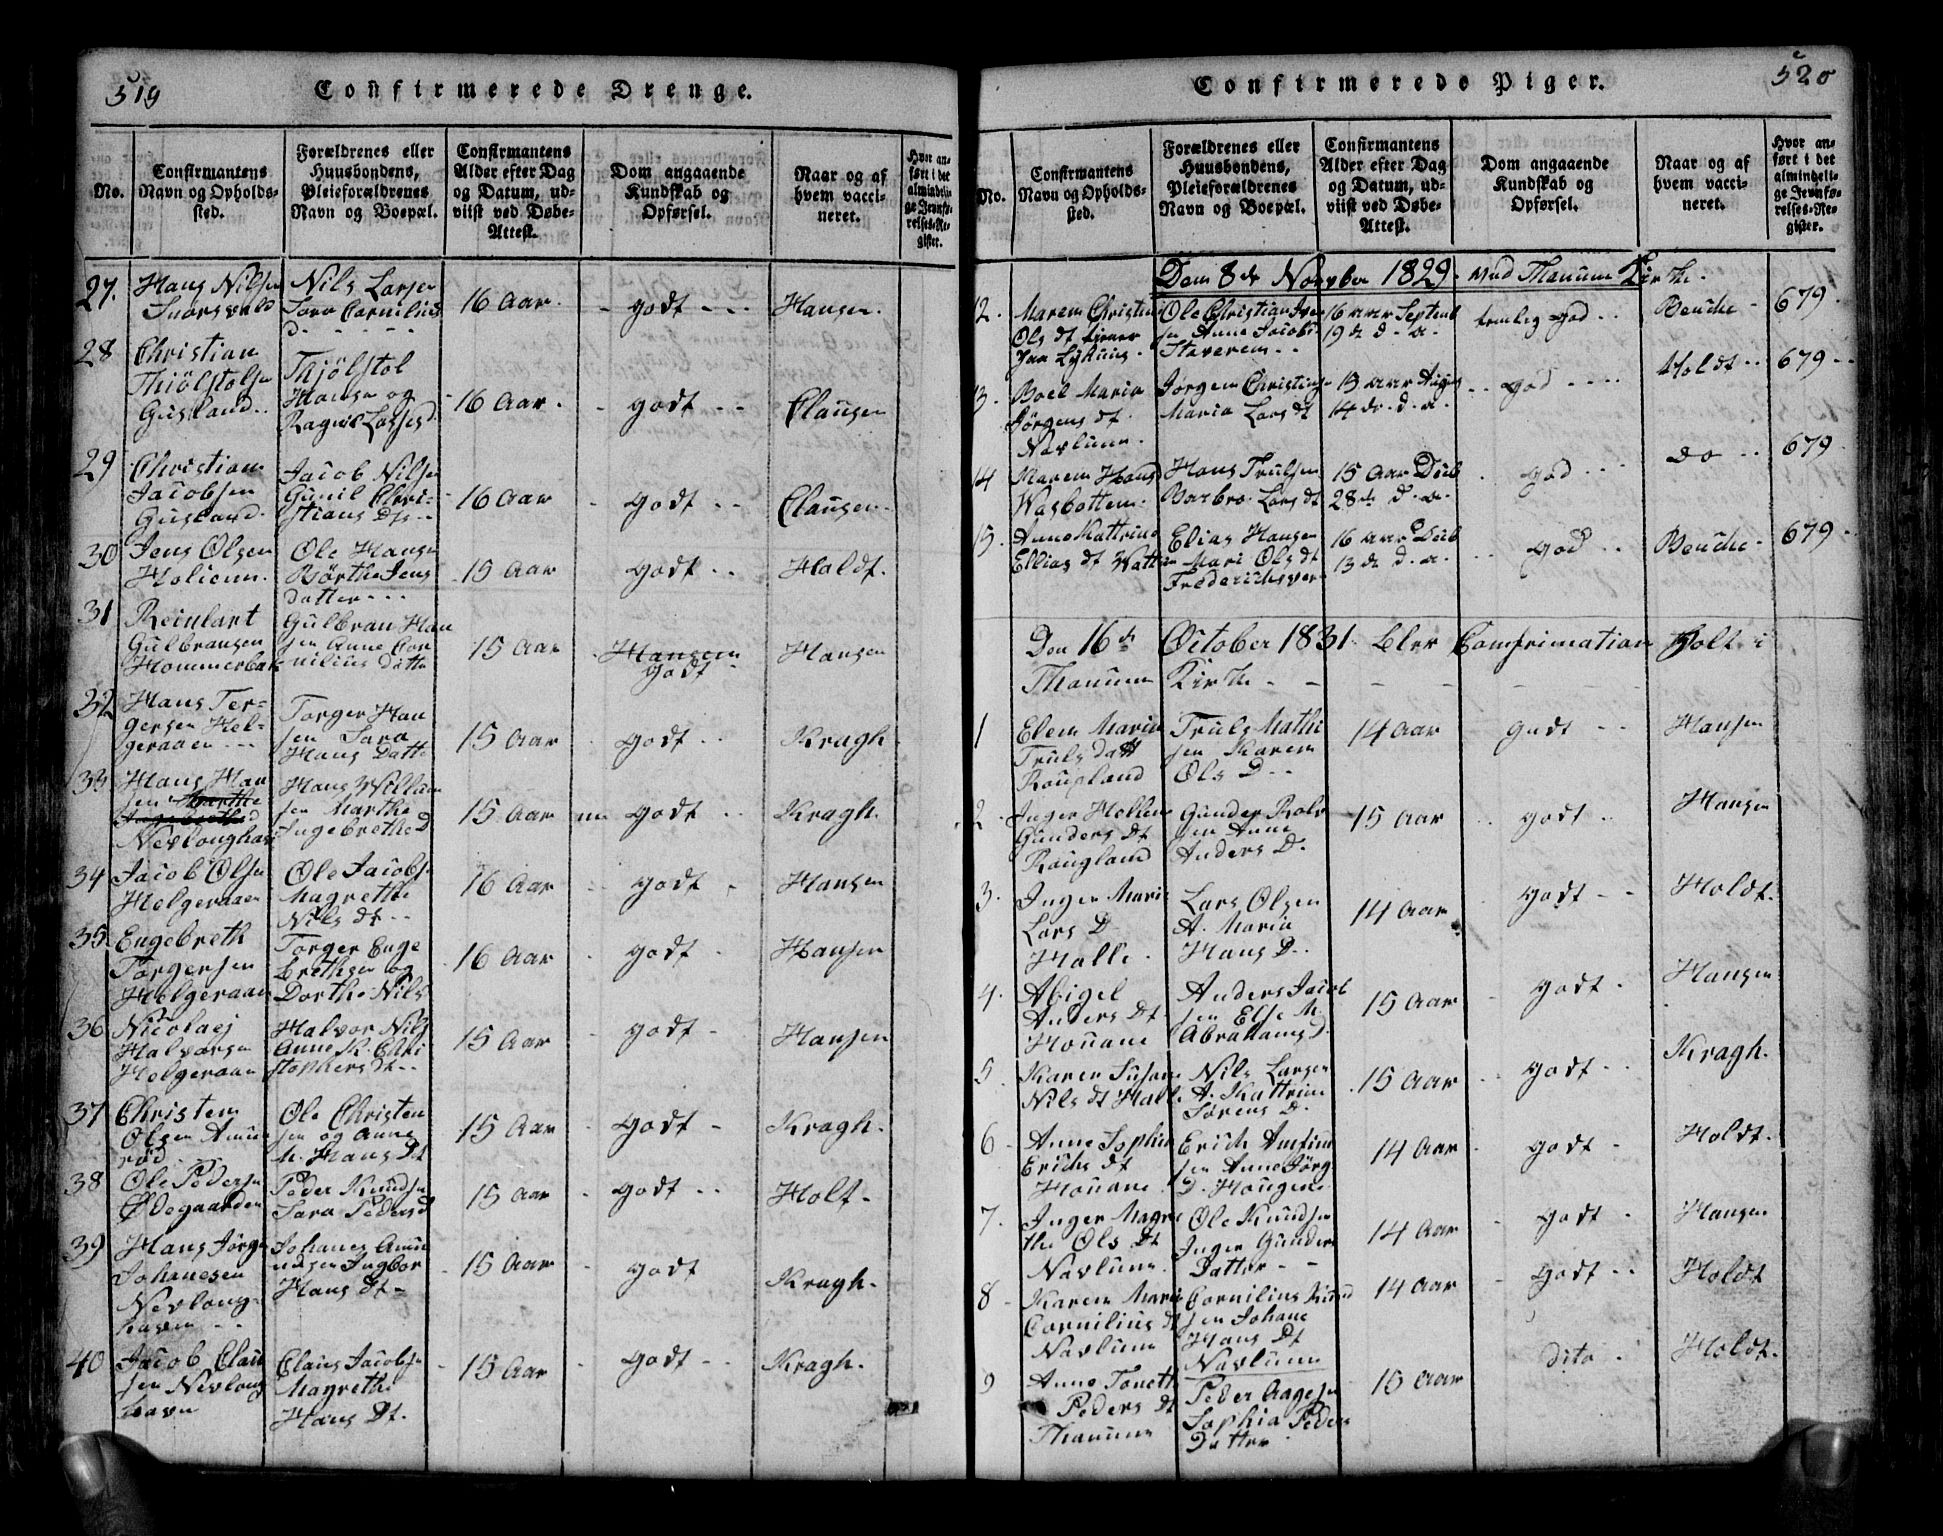 519
Confirmerede Drenge.
No.
Confirmantens
Navn og Opholds-
sted.
Forældrenes eller
Huusbondens,
Pleieforældrenes
Navn og Boepæl.
Confirmantens
Alder efter Dag
og Datum, ud-
viist ved Døbe-
Attest.
Dom angaaende
Kundskab og
Opførsel.
Naar og af
hvem vacci-
neret.
Hvor an-
ført i det
almindeli-
ge Jevnfø-
relses-Re-
gister.
27.
Hans Nilsen
Nils Larsen
Sara Cornilius
d
16 Aar.
godt
Hansen.
28
Christian
Thiölstolsen
Gusland
Thjölstol
Hansen og
Ragnil Larses d
16 Aar.
godt
Clausen
29
Christian
Jacobsen
Gusland
Jacob Nilsen
Gunil Chri-
stians dt
16 Aar
godt
Clausen
30
Jens Olsen
Holienn.
Ole Hansen
Börthe Jens
datter
15 Aar
godt
Holdt.
31
Reinhart
Gulbransen
Hommerbak
Gulbran Han
sen Anne Cor
nilius Datte
15 Aar
Hansen
godt
Hansen
32
Hans Ter-
gersen Hel-
geraaen
Torger Han
sen Sara
Hans Datte
15 Aar
godt
Kragh.
33
Hans Han
sen Marthe
Ingebrethe d
Nevlonghav
Hans Willum
sen Marthe
Ingebrethe D
15 Aar
godt
Kragh.
34
Jacob Olsen
Helgeraaen
Ole Jacobs
Magrethe
Nils dt
16 Aar
godt
Hansen
35
Engebreth
Torgersen
Helgeraaen
Torger Enge
brethsen og
Dorthe Nils
16 Aar
godt
Hansen
36
Nicolaej
Halvorsen
Helgeraaen
Halvor Nils
Anne K. Chri
stophers dt
15 Aar
godt
Hansen
37
Christen
Olsen Amun
röd
Ole Christen
sen og Anne
M. Hans Dt
15 Aar
godt
Kragh.
38
Ole Pedersen
Ødegaarden
Peder Knudsen
Sara Peders d
15 Aar
godt
Holt.
39
Hans Jörgen
Johanesen
Nevlong-
havn
Johanes Amu
ndsen Ingbor
Hans dt
15 Aar
godt
Kragh.
40
Jacob Clau
sen Nevlong
havn
Claus Jacobsen
Magrethe
Hans Dt.
15 Aar
godt
Kragh.
520
Confirmerede Piger.
No.
Confirmantens
Navn og Opholds-
sted.
Forældrenes eller
Huusbondens,
Pleieforældrenes
Navn og Boepæl.
Confirmantens
Alder efter Dag
og Datum, ud-
viist ved Døbe-
Attest.
Dom angaaende
Kundskab og
Opførsel.
Naar og af
hvem vacci-
neret.
Hvor an-
ført i det
almindeli-
ge Jevnfø-
relses-Re-
gister.
Dem 8de Novber 1829. vud Thanum Kirke.
12.
Marem Christin
Ols dt tjener
Ole Christian Iver
sen Anne Jacobs
Staverem
16 aar Septemb
19 de d. a.
temlig god
Beuche
679.
13.
Boel Maria
Jörgens dt.
Navlunn.
Jorgen Christians
Maria Lars dt
15 aar Augus
14 de. d. a.
god
Holdt
679
14
Marem Hans d
Wasbottem.
Hans Trulsen
Barbro Lars dt
15 Aar Decb
28de d. a.
god
do
679
15.
Anne Kattrine
Ellias dt
Elias Hansen
Mari Ols dt
Frederichsver
16 aar Decb
13 de d. a.
god
Beuche
679
Den 16de October 1831. Blev Comfrimation Holt i
Thanum Kirke
1
Elem Maria
Truls datt
Rougland
Truls Mathi
sen Karem
Ols D
14 Aar
godt
Hansen
2
Inger Helhem
Gunders dt
Rougland
Gunder Rolv
sen Anne
Anders D.
15 Aar
godt
Hansen
3.
Inger Mari
Lars D
Halle.
Lars Olsen
A. Maria
Hans D.
14 Aar
godt
Holdt.
4.
Abigel
Anders Dt
Houane
Anders Jacob
sen Else M.
Abrahams D.
15 Aar
godt
Hansen
5
Karen Susane
Nils dt Hall.
Nils Larsen
A. Kattrine
Sörens D.
15 Aar
godt
Kragh.
6
Anne Sophia
Erichs dt
Houane
Erich Amtin
sen Anne Jörg
D. Hougene
14 Aar
godt
Holdt.
7.
Inger Magre
the Ols Dt
Navlunn.
Ole Knudsen
Inger Gunders
Datter
14 Aar
godt
Hansen
8
Karem Mari
Cornilius dt
Navlunn
Cornilius Knud
sen Johane
Hans Dt
Navlunn
14 Aar
Godt
Holdt
9
Anne Tonett
Peders dt
Thanum
Peder Aagesen
Sophia Peders
Datter
15 Aar
dito
Holdt.